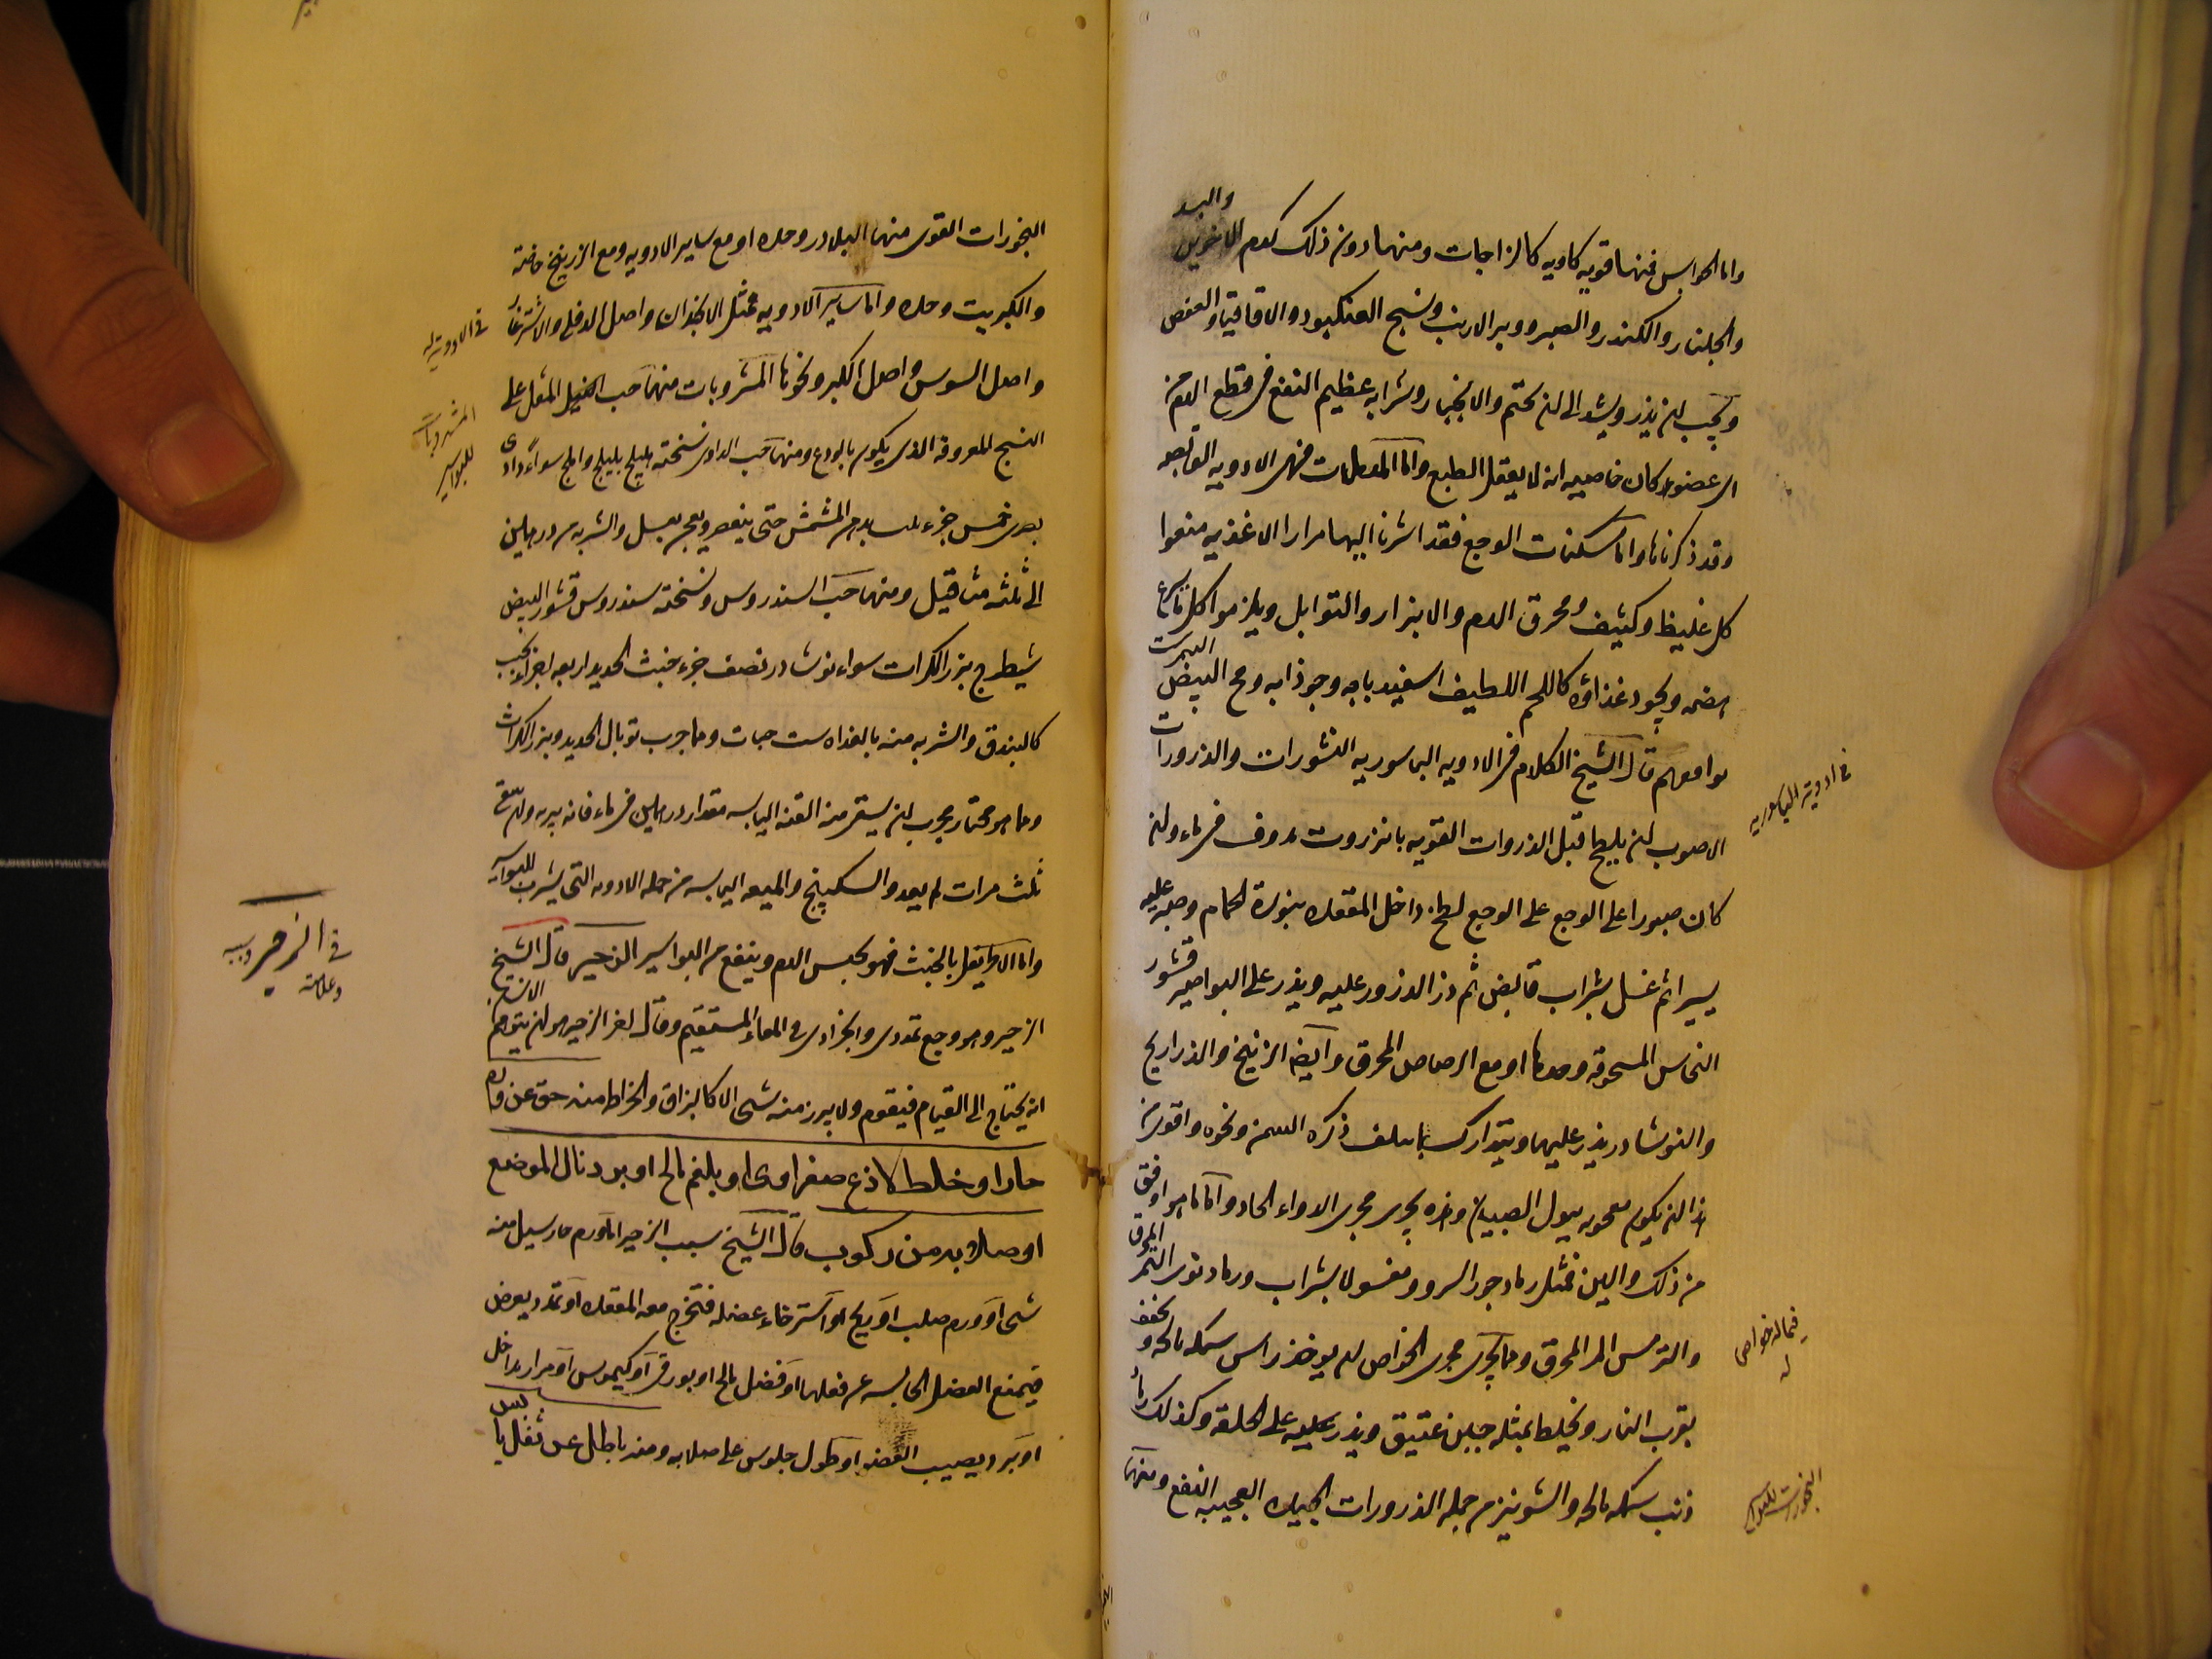 واما الحوابس فمنها قويه كاويه كالزاجات ومنها دون ذلك كدم الاخوين والبسد
والجلنار والكندر والصبر ووبر الارنب ونسج العنكبود والاقاقيا والعفص
ويجب ان يذر ويشد الى ان يختم والانجبار وشرابه عظيم النفع في قطع الدم من
اى عضو كان خاصيه انه لا يعقل الطبع واما المعدلات فهى الادويه القابضه
وقد ذكرناها واما مسكنات الوجع فقد اشرنا اليها مرارا الاغذيه منعوا
كل غليظ وكثيف ومحرق الدم والابزار والتوابل ويلزموا كل ما يسرع
هضمه ويجود غذاؤه كاللحم اللطيف اسفيدباجه وجوذابه ومح البيض
قال الشيخ الكلام في الادويه الباسوريه النثورات والذرورات
في ادوية الباسوريه
الاصوب ان يلطخ قبل الذرورات القويه بانزروت مدوف في ماء وان
كان صبورا على الوجع على الوجع لطخ داخل المقعده بنورة الحمام وصبر عليه
يسيرا ثم غسل بشراب قابض ثم ذر الذرور عليه ويذر على البواصير قشور
النحاس المسحوقه وحدها او مع الرصاص المحرق وايضا الزرنيخ والذراريح
والنوشادر يذر عليها ويتدارك بما سلف ذكره السمن ونحوه واقوى من
هذا ان يكون معجونه ببول الصبيان وهذه يجرى مجرى الدواء الحاد واما ما هو اوفق
من ذلك والين فمثل رماد جوز السرو ومغسولا بشراب ورماد نوى التمر المحرق
والترمس المر المحرق ومما يجرى مجرى الخواص ان يوخذ راس سمكه مالحه ويجفف
فيما له خواص له
بقرب النار ويخلط بمثله جبن عتيق ويذر عليه على الحلقه وكذلك رماد
ذنب سمكه مالحه والشونيز من جمله الذرورات الجيده العجيبه النفع ومنها
البخورات للبواسير
البخورات القوى منها البلادر وحده او مع ساير الادويه ومع الزرنيخ خاصه
والكبريت وحده واما ساير الادويه فمثل الانجذان واصل الدفلى والاشترغاز
واصل السوس واصل الكبر ونحوها المشروبات منها حب المقل على
في الادوية المشروبات للبواسير
النسج المعروفه الذى يكون بالودع ومنها حب الداوى نسخته هليلج بليلج واملج سواء دادى
بصرى خمس جزء بدهن المشمش حتى ينعصر ويعجن بعسل والشربه من درهمين
الى ثلثه مثاقيل ومنها حب السندروس ونسخته سندروس قشور البيض
شيطرج بزر الكراث سواء نوشادر نصف جزء خبث الحديد اربعه اجزاء يحبب
كالبندق والشربه منه بالغداه ست حبات ومما جرب توبال الحديد وبزر الكراث
ومما هو مختار مجرب ان يسقى من القنه اليابسه مقدار درهمين في ماء فانه يبريه وان سقى
ثلث مرات لم يعد والسكبينج والميعه اليابسه من جمله الادويه التى يشرب للبواسير
واما الاطريفل بالخبث فهو يحبس الدم وينفع من البواسير الزحير قال الشيخ
في الزحير وسببه وعلامته
الزحير وهو وجع تمددى وانجرادى في المعاء المستقيم وقال اخر الزحير هو ان يتوهم الانسان
انه يحتاج الى القيام فيقوم ولا يبرز منه شى الا كالبزاق والخراط منه حق عن ورم
حار او خلط لاذع صفراوى او بلغم مالح او برد نال الموضع
او صلابه من ركوب قال الشيخ سبب الزحير اما ورم حار يسيل منه
شى او ورم صلب او ريح او استرخاء عضله فتخرج معه المقعده او تمدد يعرض
فيمنع العضل الحابسه عن فعلها او فضل مالح او بورقى او كيموس او مرار مداخل
او برد يصيب العضو او طول جلوس على صلابه ومنه باطل عن ثفل يابس